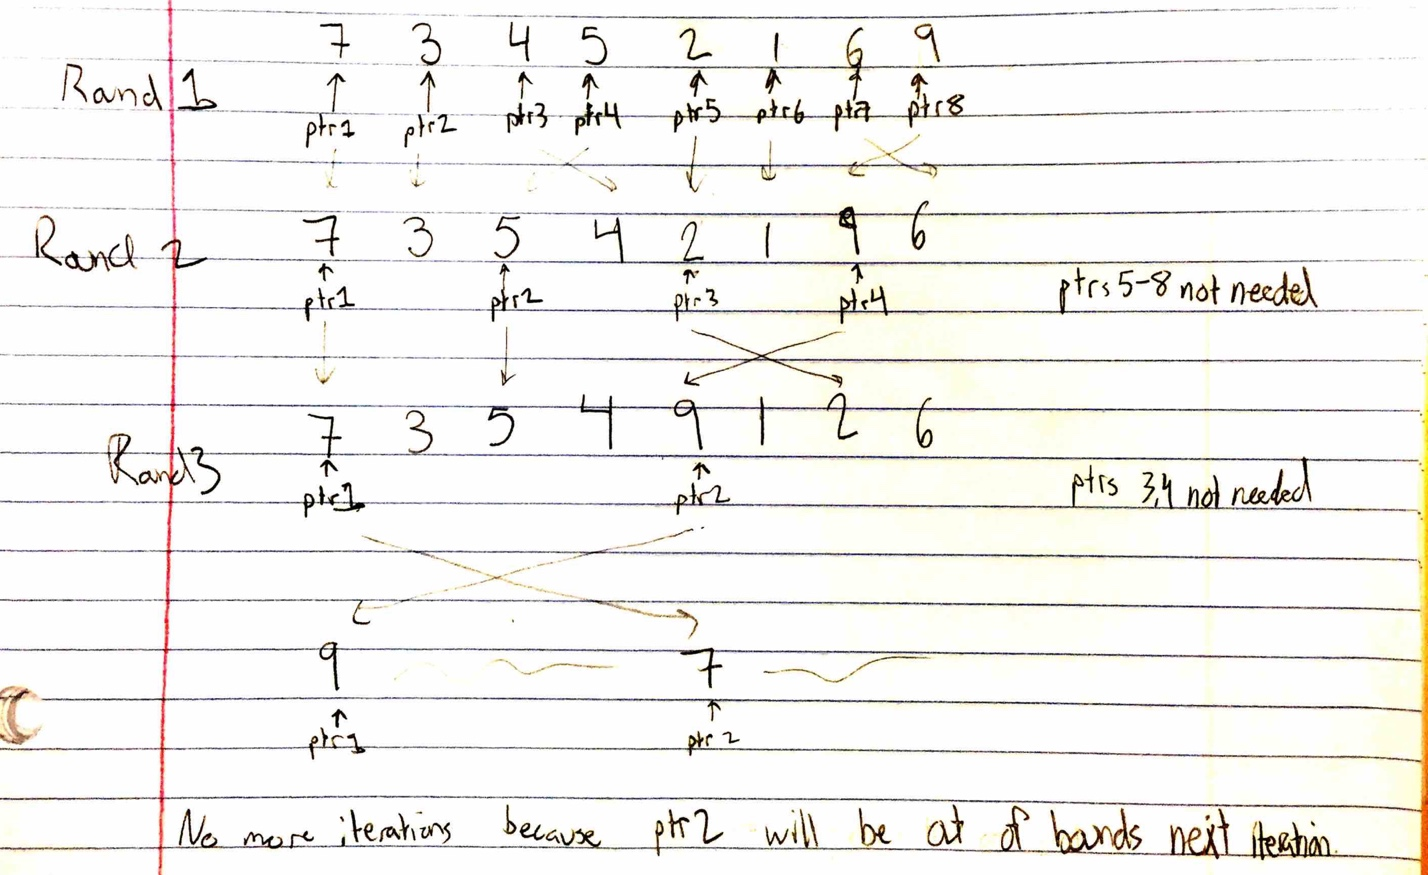 7 3 4 5 2 1 6 9
Rand 1
ptr1 ptr2 ptr3 ptr4 ptr5 ptr6 ptr7 ptr8
Rand 2
7 3 5 4 2 1 9 6
ptr1 ptr2 ptr3 ptr4
ptrs 5-8 not needed
7 3 5 4 9 1 2 6
Rand3
ptr1 ptr2
ptrs 3,4 not needed
9 7
ptr1 ptr2
No more iterations because ptr2 will be out of bounds next iteration.